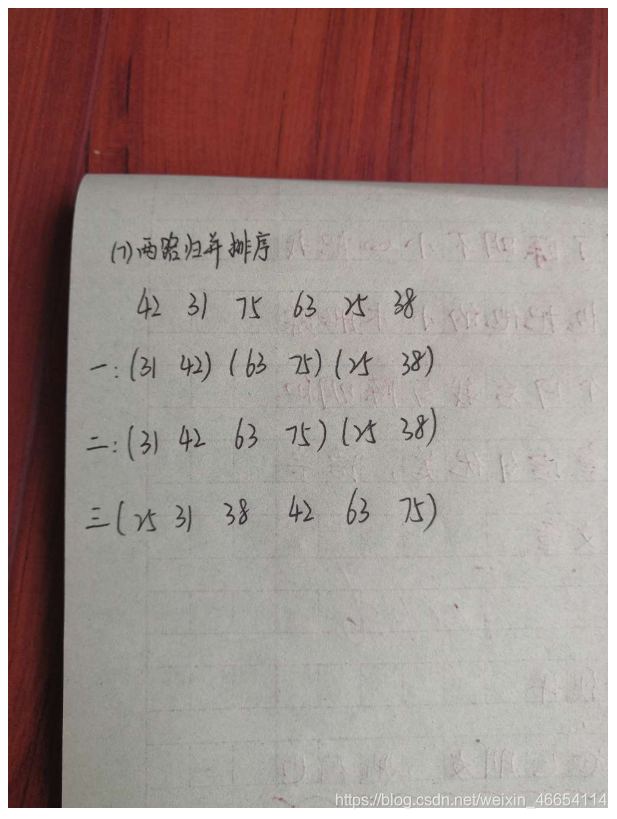 (7)两路归并排序
42 31 75 63 25 38
一:(31 42) (63 75) (25 38)
二:(31 42 63 75) (25 38)
三(25 31 38 42 63 75)
https://blog.csdn.net/weixin_46654114